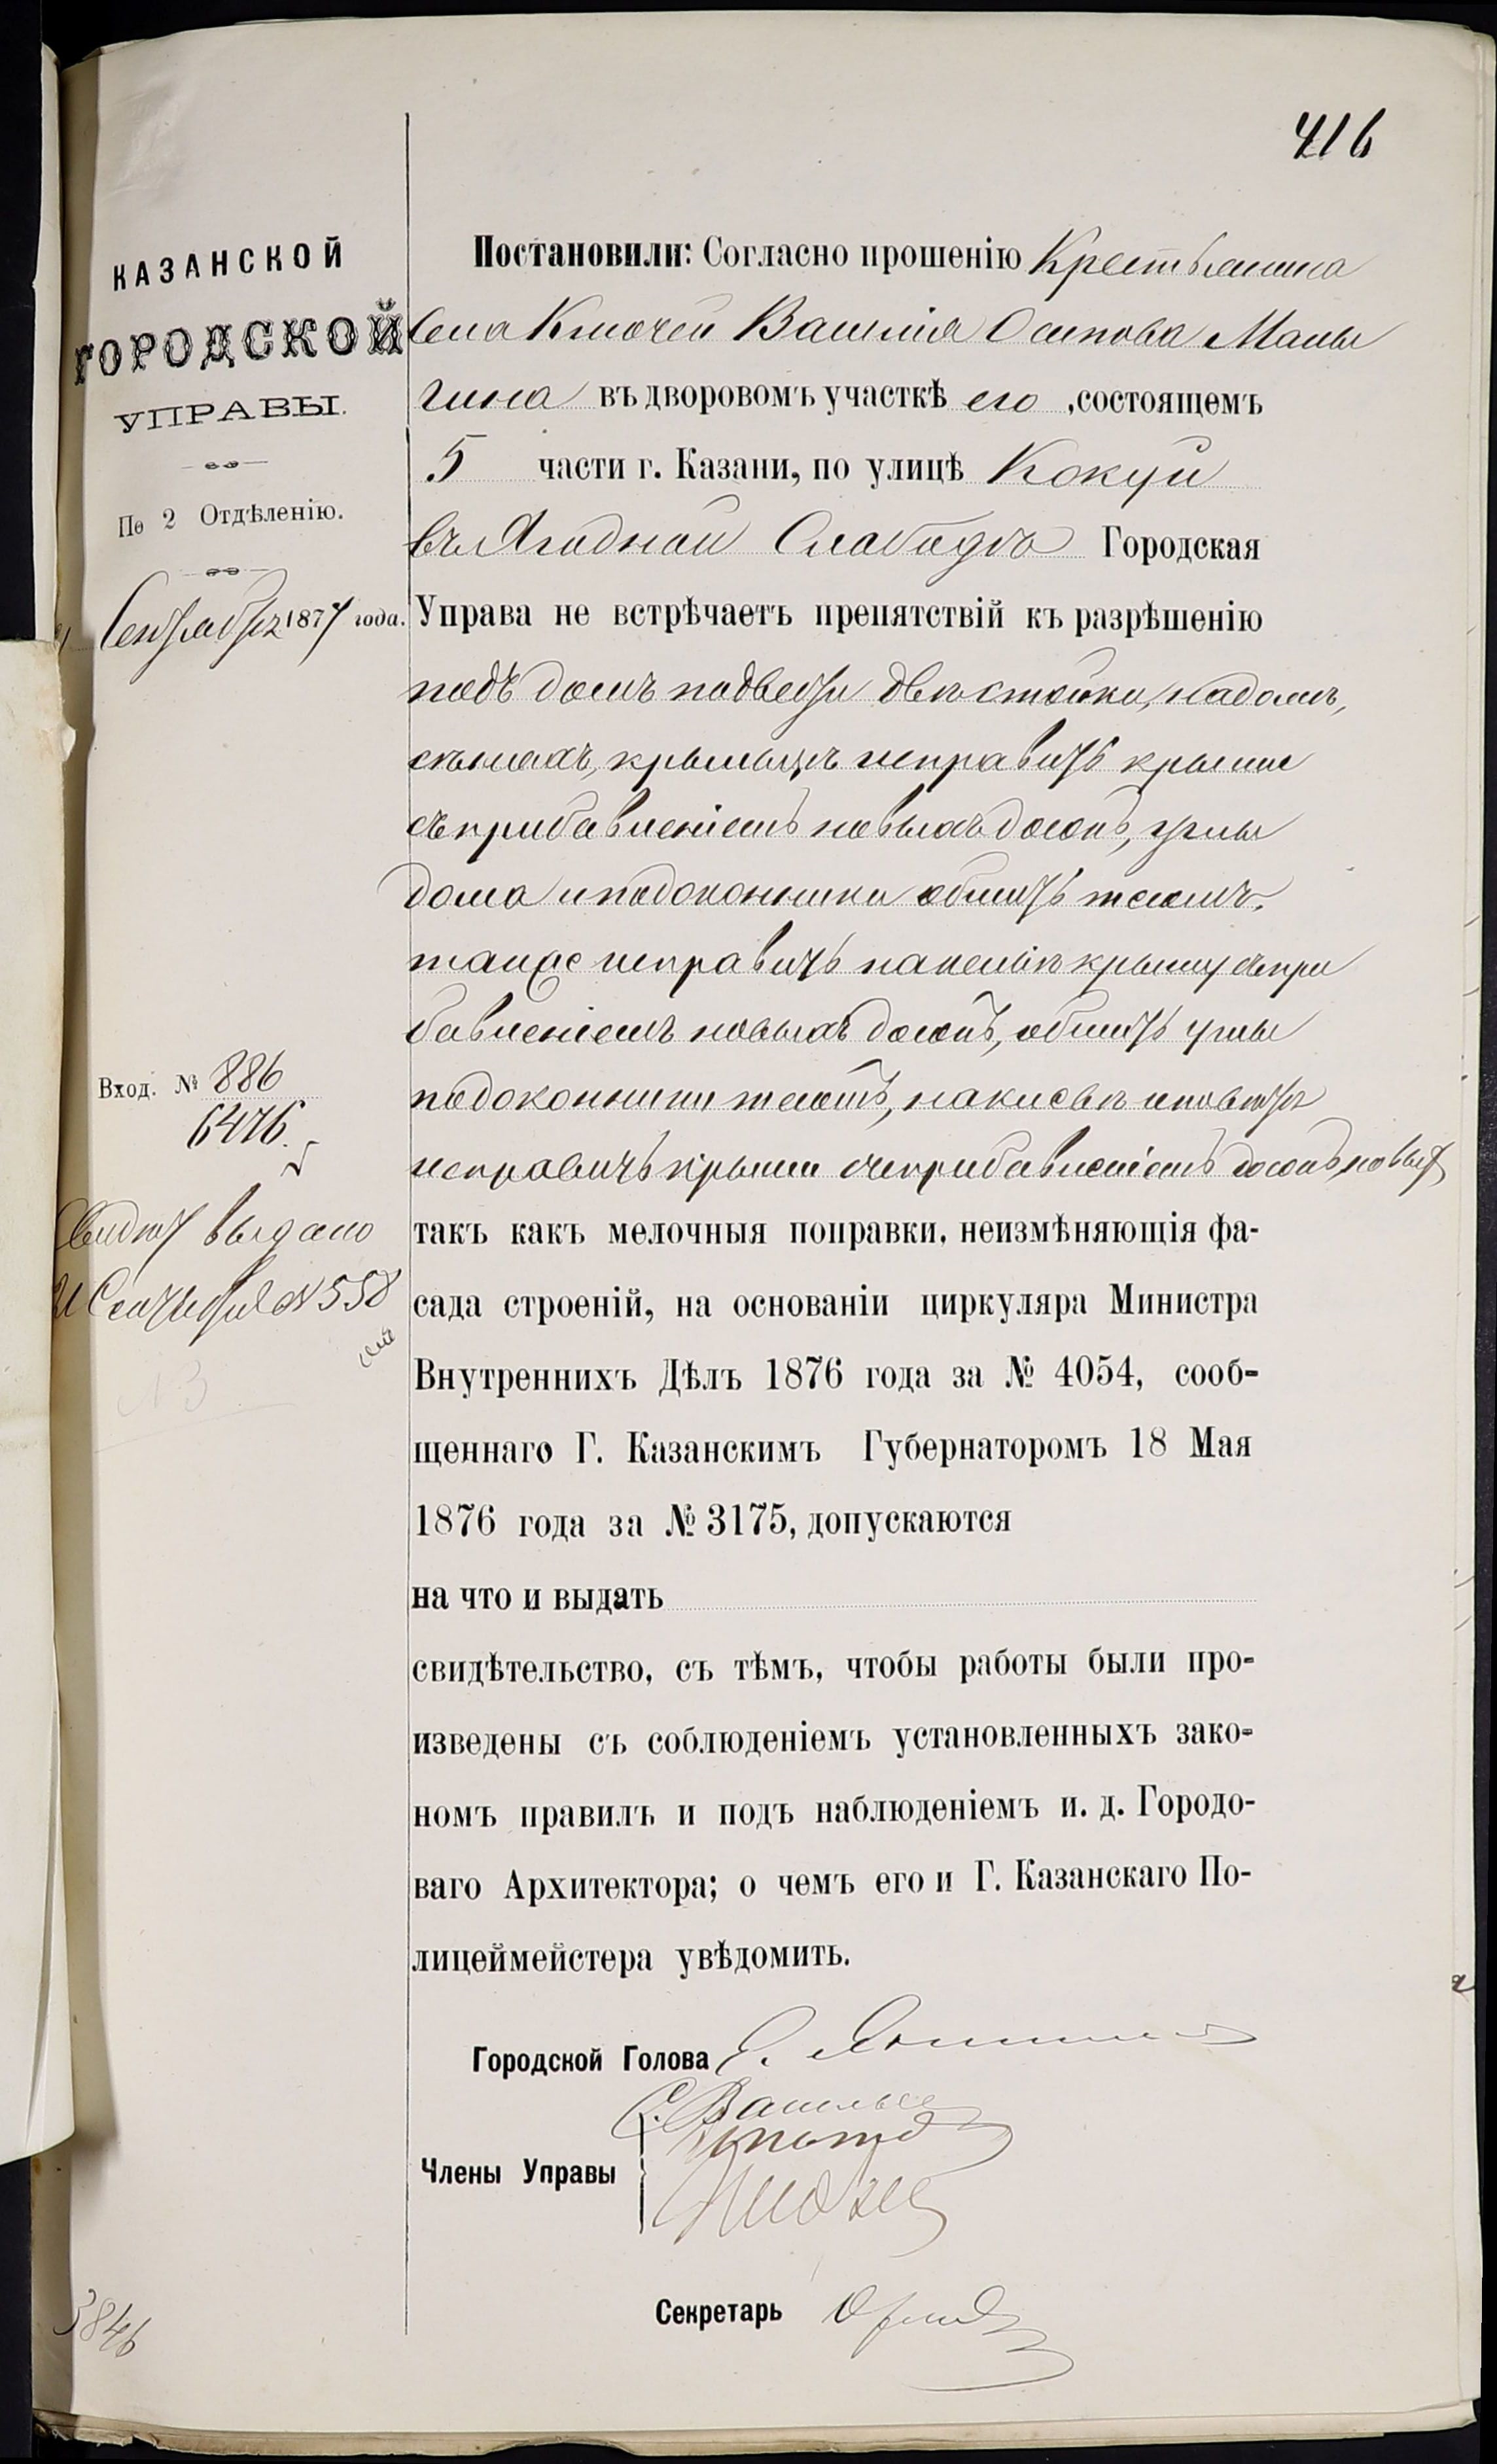 416
КАЗАНСКОЙ
ГОРОДСКОЙ
УПРАВЫ.
По 2 Отдѣленію.
Сентября 1877 года.
Вход. № 886
6476.
Свидѣт выдано
Сентября № 558
3846
Постановили: Согласно прошенію Крестьянина
Села Ключей Василія Осипова Малы
гина въ дворовомъ участкѣ его, состоящемъ
5 части г. Казани, по улицѣ Кокуй
въ Ягодной Слободѣ Городская
Управа не встрѣчаетъ препятствій къ разрѣшенію
подъ домъ подвести двѣ стойки, на домѣ,
сѣняхъ, крыльцѣ исправить крыши
съ прибавленіемъ новыхъ досокъ, углы
дома и подоконники обшить тесомъ,
также исправить на крышу съ при
бавленіемъ новыхъ досокъ, обшить углы
подоконники тесомъ,
исправить крыши съ прибавленіемъ досокъ новыхъ
такъ какъ мелочныя поправки, неизмѣняющія фа-
сада строеній, на основаніи циркуляра Министра
Внутреннихъ Дѣлъ 1876 года за № 4054, сооб-
щеннаго Г. Казанскимъ Губернаторомъ 18 Мая
1876 года за № 3175, допускаются
на что и выдать
свидѣтельство, съ тѣмъ, чтобы работы были про-
изведены съ соблюденіемъ установленныхъ зако-
номъ правилъ и подъ наблюденіемъ и. д. Городо-
ваго Архитектора; о чемъ его и Г. Казанскаго По-
лицеймейстера увѣдомить.
Городской Голова
С. Васильев
Члены Управы
Секретарь